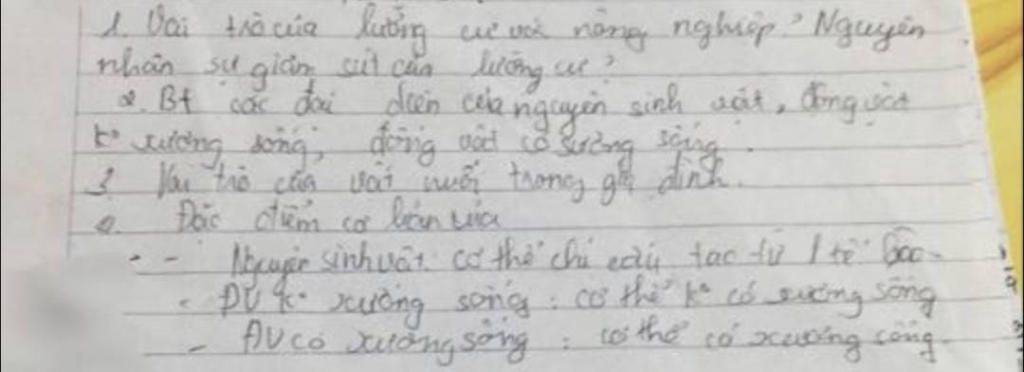 1. Vai trò của lưỡng cư với nông nghiệp? Nguyên
nhân sự giảm sút của lưỡng cư?
2. Bt các đại diện của nguyên sinh vật, động vật
k° xương sống, động vật có xương sống.
3. Vai trò của vật nuôi trong gia đình.
Đặc điểm cơ bản của
- Nguyên sinh vật: cơ thể chỉ cấu tạo từ 1 tế bào.
- ĐV k° xương sống: cơ thể k° có xương sống
- ĐV có xương sống: cơ thể có xương sống